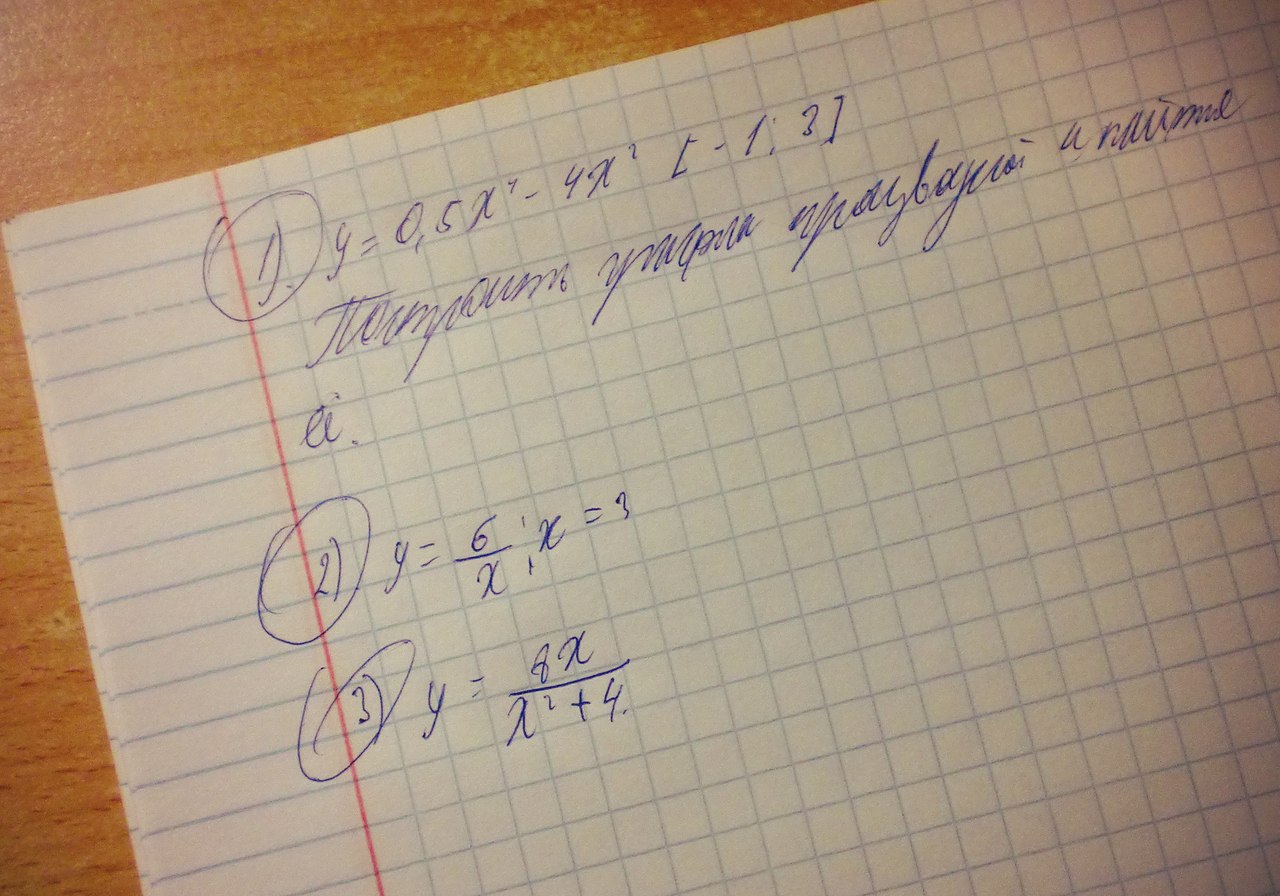 1). y = 0,5x⁴ - 4x² [-1; 3]
Построить график производной и найти
её.
2) y = 6/x; x = 3
3) y = 8x/x² + 4.